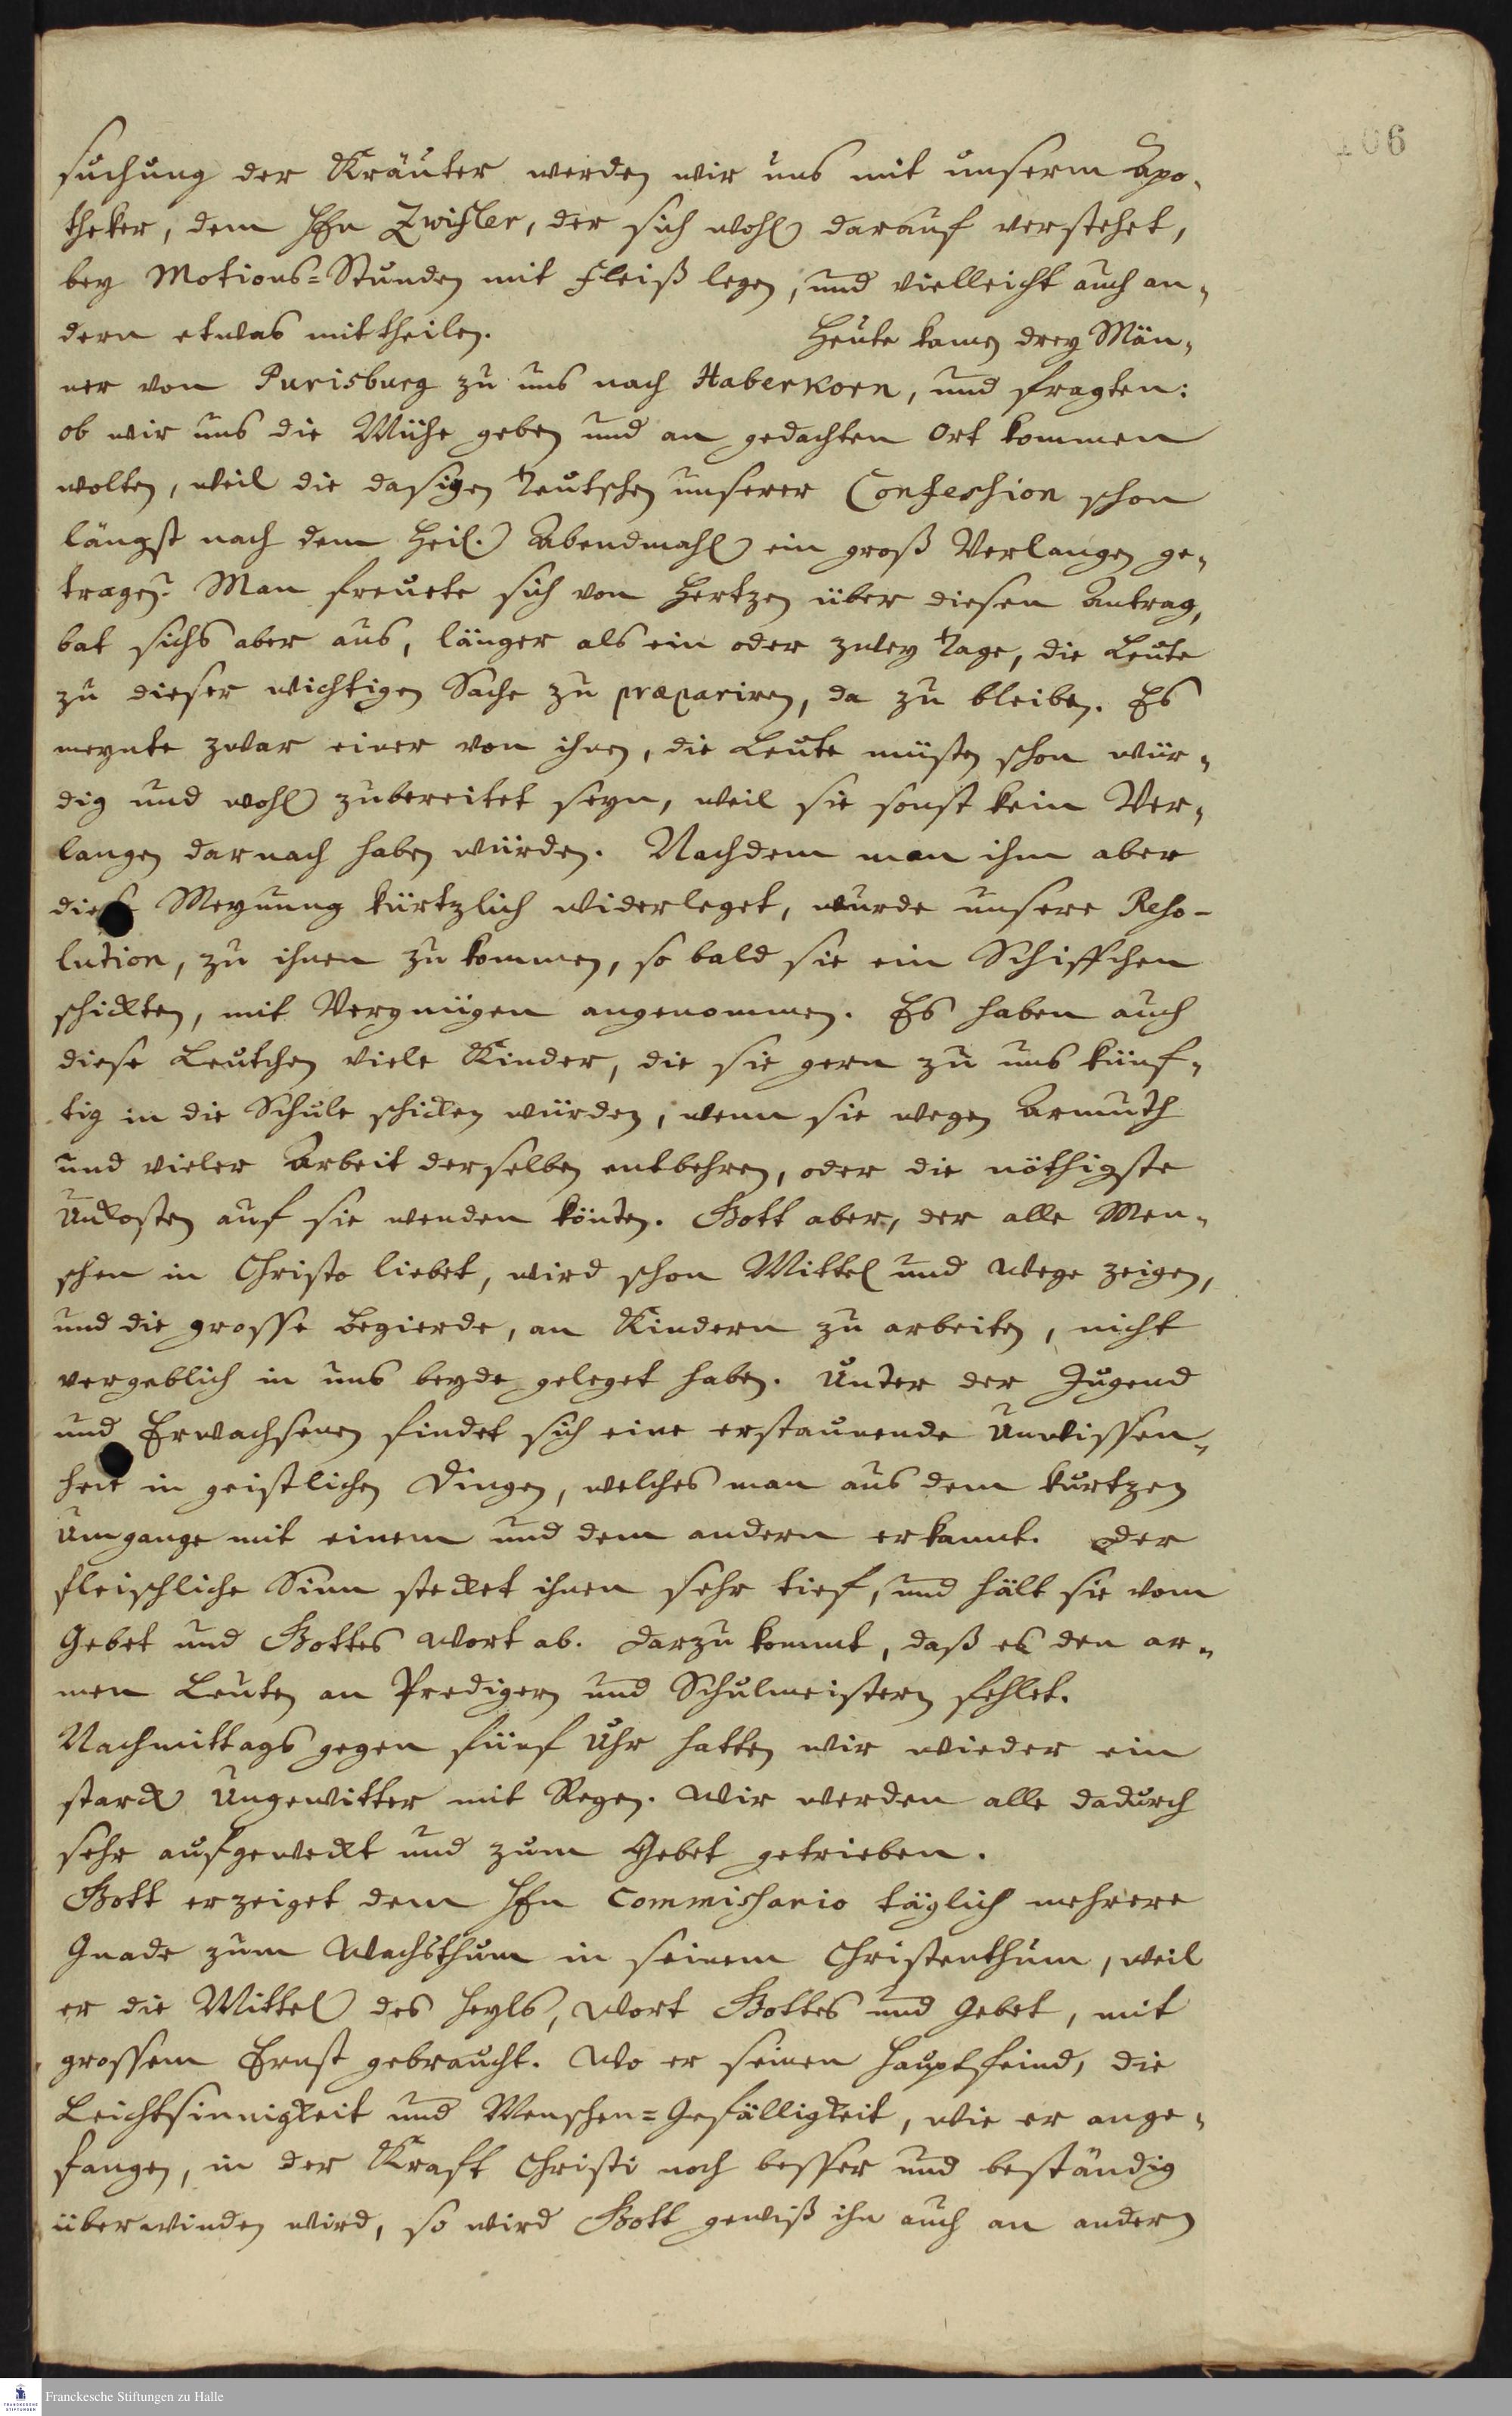 106
suchung der Kräuter werden wir uns mit unserm Apo-
theker, dem Hn Zwifler, der sich wohl darauf verstehet,
bey Motions-Stunden mit Fleiß legen, und vielleicht auch an-
dern etwas mittheilen. Heute kamen drey Män-
ner von Purisburg zu uns nach Haberkorn, und fragten:
ob wir uns die Mühe geben und an gedachten Ort kommen
wolten, weil die dasigen Teutschen unserer Confession schon
längst nach dem Heil. Abendmahl ein groß Verlangen ge-
tragen? Man freuete sich von Hertzen über diesen Antrag,
bat sichs aber aus, länger als ein oder zwey Tage, die Leute
zu dieser wichtigen Sache zu præpariren, da zu bleiben. Es
meynte zwar einer von ihnen, die Leute müsten schon wür-
dig und wohl zubereitet seyn, weil sie sonst kein Ver-
langen darnach haben würden. Nachdem man ihm aber
diese Meynung kürtzlich widerleget, wurde unsere Reso-
lution, zu ihnen zu kommen, so bald sie ein Schiffchen
schickten, mit Vergnügen angenommen. Es haben auch
diese Leutchen viele Kinder, die sie gern zu uns künf-
tig in die Schule schicken würden, wenn sie wegen Armuth
und vieler Arbeit derselben entbehren, oder die nöthigste
Unkosten auf sie wenden könten. Gott aber, der alle Men-
schen in Christo liebet, wird schon Mittel und Wege zeigen,
und die grosse Begierde, an Kindern zu arbeiten, nicht
vergeblich in uns beyde geleget haben. Unter der Jugend
und Erwachsenen findet sich eine erstaunende Unwissen-
heit in geistlichen Dingen, welches man aus dem kurtzen
Umgange mit einem und dem andern erkannt. Der
fleischliche Sinn stecket ihnen sehr tief, und hält sie vom
Gebet und Gottes Wort ab. Darzu kommt, daß es den ar-
men Leuten an Predigern und Schulmeistern fehlet.
Nachmittags gegen fünf Uhr hatten wir wieder ein
starck Ungewitter mit Regen. Wir werden alle dadurch
sehr aufgeweckt und zum Gebet getrieben.
Gott erzeiget dem Hn Commissario täglich mehrere
Gnade zum Wachsthum in seinem Christenthum, weil
er die Mittel des Heyls, Wort Gottes und Gebet, mit
grossem Ernst gebraucht. Wo er seinen Hauptfeind, die
Leichtsinnigkeit und Menschen-Gefälligkeit, wie er ange-
fangen, in der Kraft Christi noch besser und beständig
überwinden wird, so wird Gott gewiß ihn auch an andern
Franckesche Stiftungen zu Halle